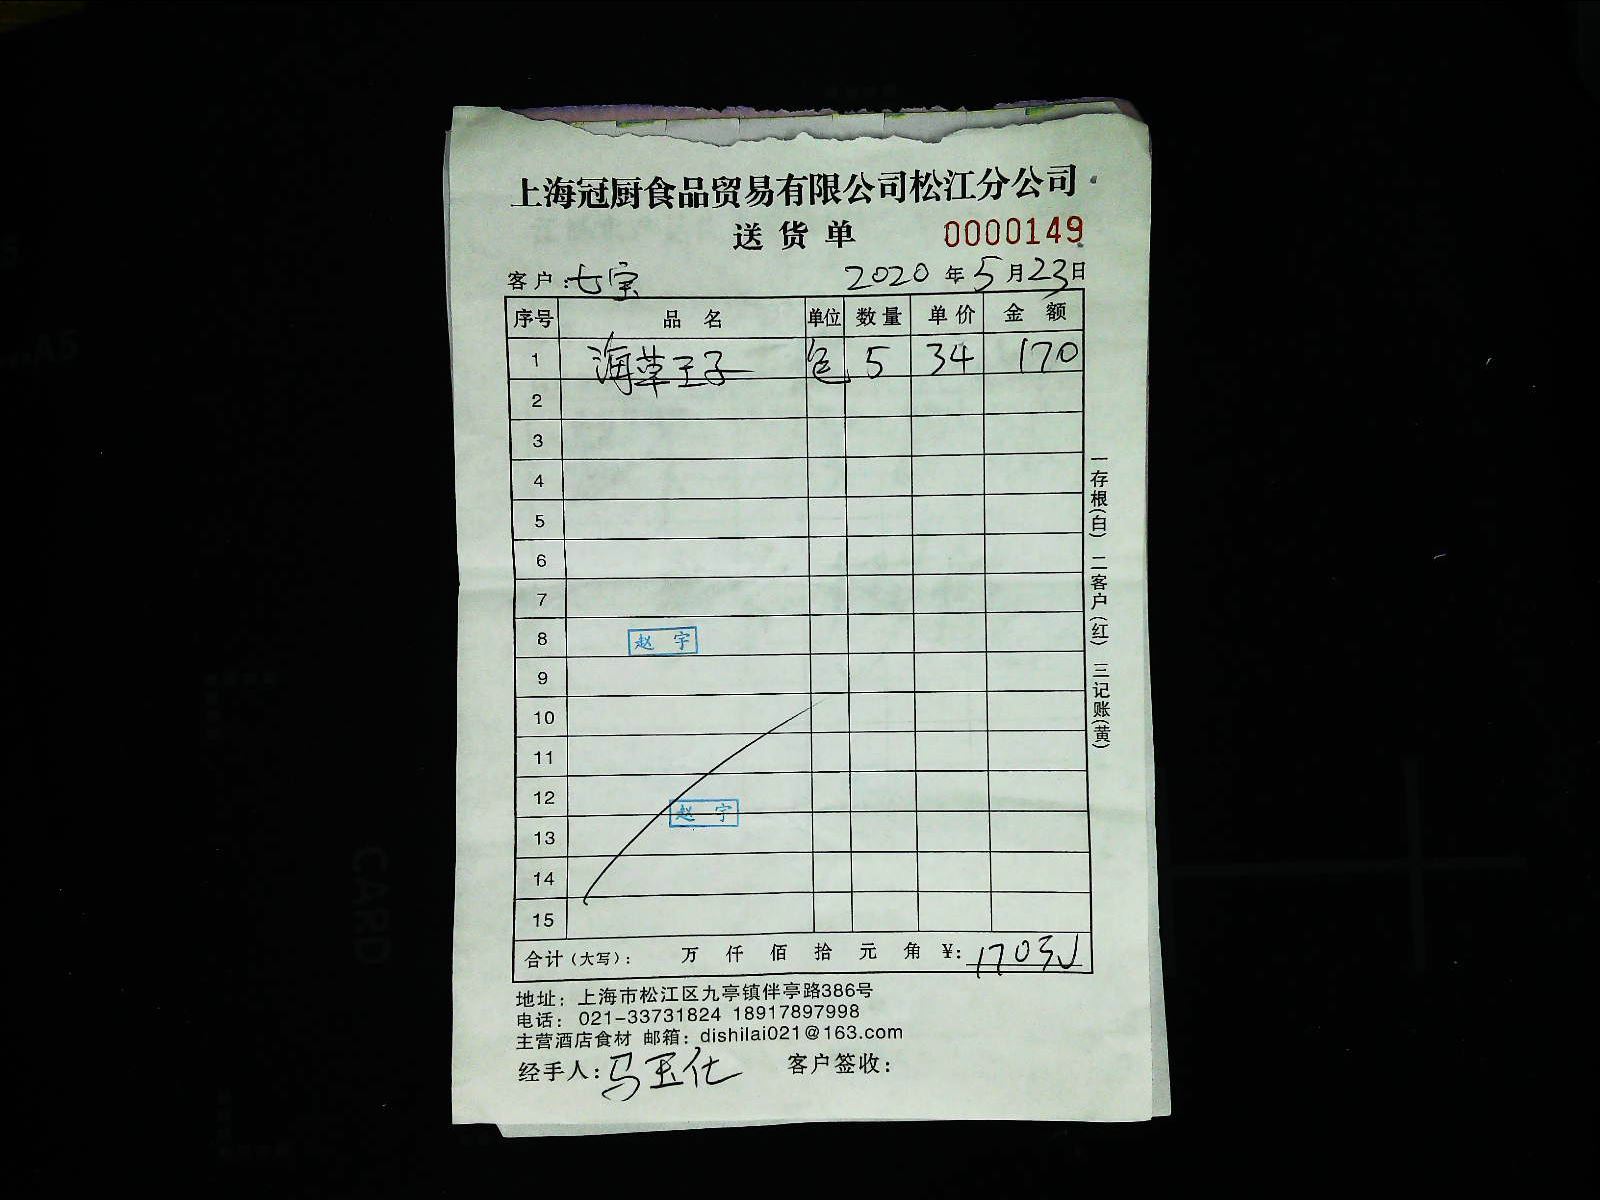 上海冠厨食品贸易有限公司松江分公司
送货单 0000149
客户:七宝 2020年5月23日
序号 品名 单位 数量 单价 金额
1 海草王子 包 5 34 170
2
3
4
5
6
7
8 赵宇
9
10
11
12 赵宇
13
14
15
合计(大写): 万 仟 佰 拾 元 角 ¥: 170
地址:上海市松江区九亭镇伴亭路386号
电话: 021-33731824 18917897998
主营酒店食材 邮箱: dishilai021@163.com
经手人:马玉仕 客户签收:
一存根(白) 二客户(红) 三记账(黄)
CARD
A5